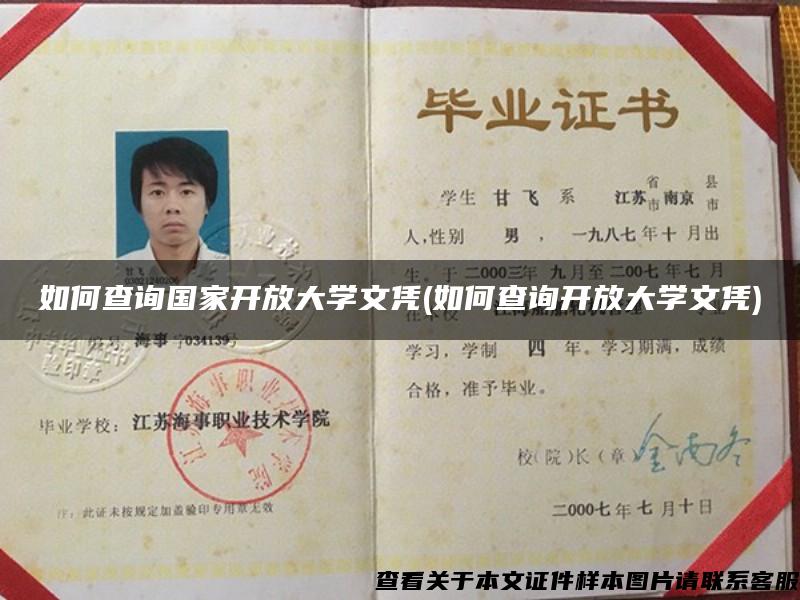 毕业证书
学生 甘飞 系 江苏 省市 南京 县市
人,性别 男 , 一九八七年十月出
生。于二000三年 九月至二00七年 七月
如何查询国家开放大学文凭(如何查询开放大学文凭)
学习,学制 四 年。学习期满,成绩
合格,准予毕业。
校(院)长(章)
二000七年七月十日
甘飞
海事 字034139号
毕业学校: 江苏海事职业技术学院
江苏海事职业技术学院
注: 此证未按规定加盖验印专用章无效
查看关于本文证件样本图片请联系客服